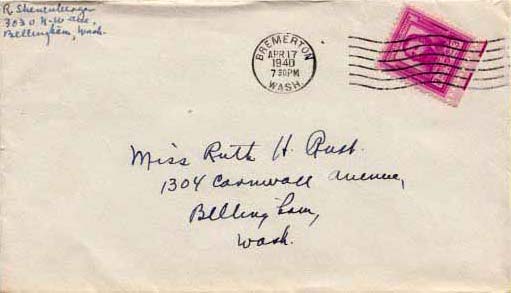 R Shenenberger
3030 N-W ave,
Bellingham, Wash.
BREMERTON
APR 17
1940
7 30 PM
WASH.
Miss Ruth H. Rust.
1304 Cornwall Avenue,
Bellingham,
Wash.